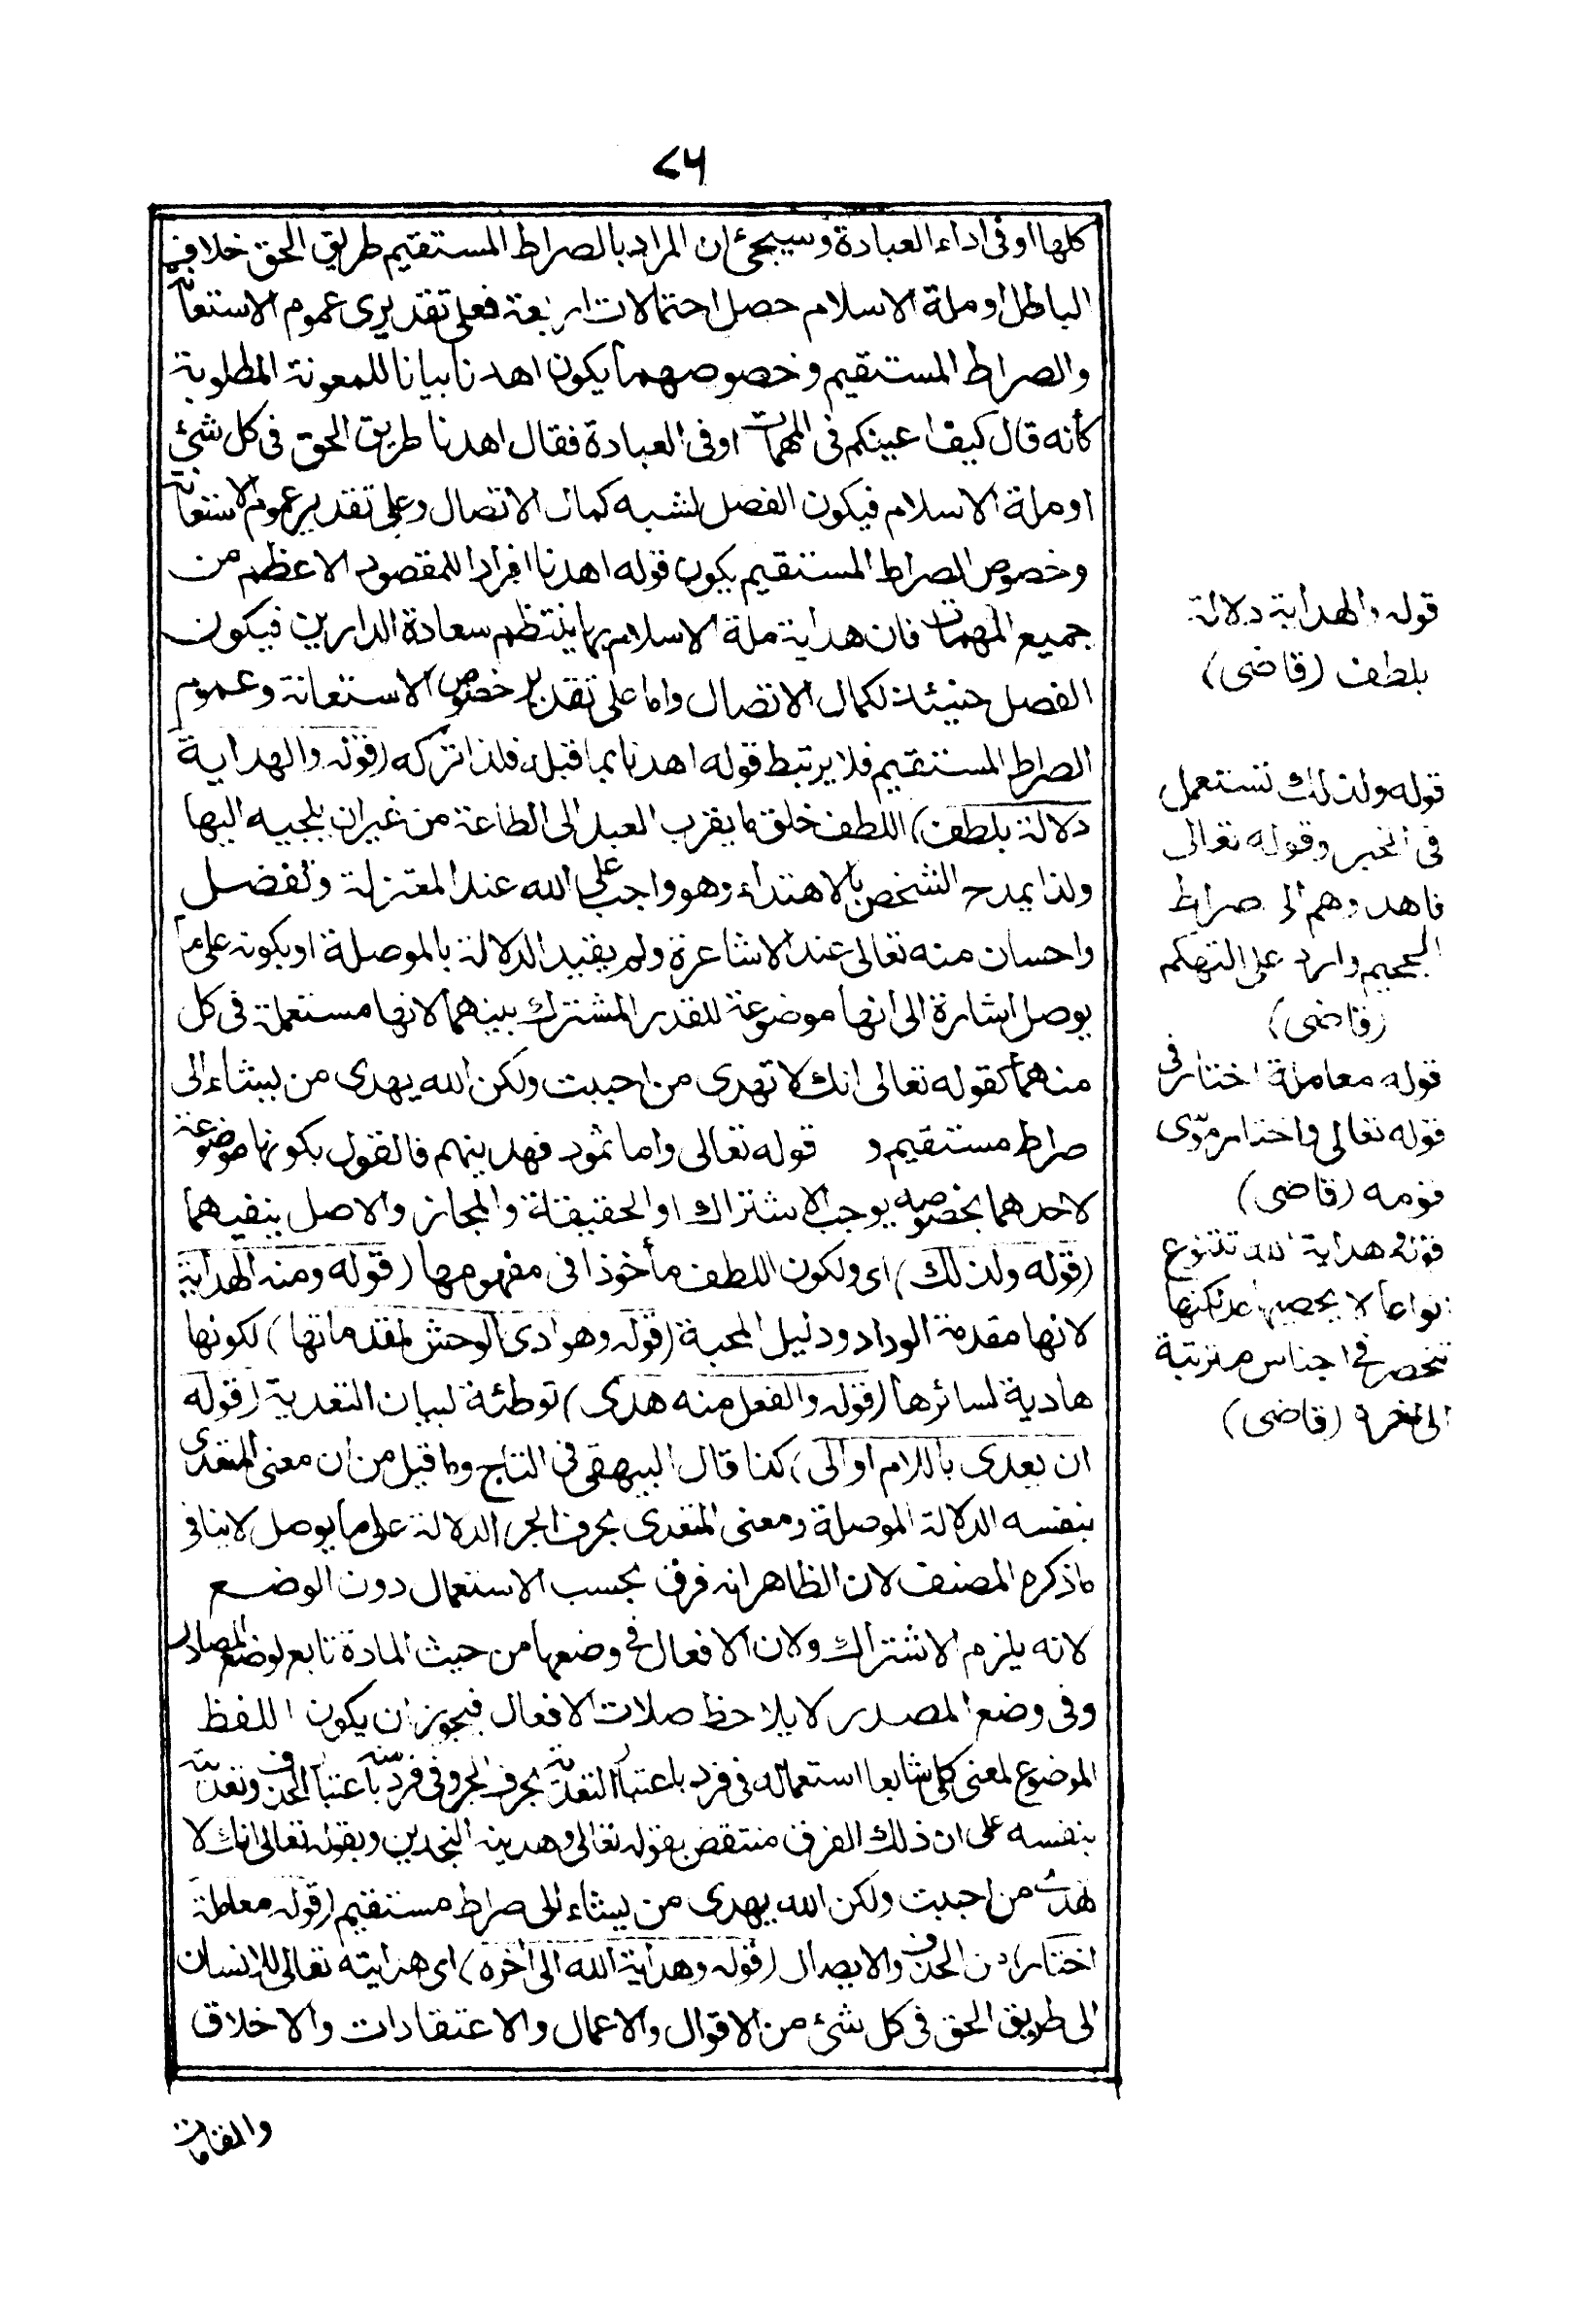 ٧٦
كلها او فى اداء العبادة وسيجئ ان المراد بالصراط المستقيم طريق الحق خلاف
الباطل او ملة الاسلام حصل احتمالات اربعة فعلى تقديرى عموم الاستعانة
والصراط المستقيم وخصوصهما يكون اهدنا بيانا للمعونة المطلوبة
كأنه قال كيف اعينكم فى المهمات او فى العبادة فقال اهدنا طريق الحق فى كل شئ
او ملة الاسلام فيكون الفصل لشبه كمال الاتصال وعلى تقدير عموم الاستعانة
وخصوص الصراط المستقيم يكون قوله اهدنا افرادا للمقصود الاعظم من
جميع المهمات فان هداية ملة الاسلام بها ينتظم سعادة الدارين فيكون
الفصل حينئذ لكمال الاتصال واما على تقدير خصوص الاستعانة وعموم
الصراط المستقيم فلا يرتبط قوله اهدنا بما قبله فلذا تركه (قوله والهداية
دلالة بلطف) اللطف خلق ما يقرب العبد الى الطاعة من غير ان يلجيه اليها
ولذا يمدح الشخص بالاهتداء وهو واجب على الله عند المعتزلة وتفضل
واحسان منه تعالى عند الاشاعرة ولم يقيد الدلالة بالموصلة او بكونه على ما
يوصل اشارة الى انها موضوعة للقدر المشترك بينهما لانها مستعملة فى كل
منهما كقوله تعالى انك لا تهدى من احببت ولكن الله يهدى من يشاء الى
صراط مستقيم و قوله تعالى واما ثمود فهدينهم فالقول بكونها موضوعة
لاحدهما بخصوصه يوجب الاشتراك او الحقيقة والمجاز والاصل ينفيهما
(قوله ولذلك) اى ولكون اللطف مأخوذا فى مفهومها (قوله ومنه الهداية
لانها مقدمة الوداد ودليل المحبة (قوله وهوادى الوحش لمقدماتها) لكونها
هادية لسائرها (قوله والفعل منه هدى) توطئة لبيان التعدية (قوله
ان يعدى باللام او الى) كذا قال البيهقى فى التاج وما قيل من ان معنى المتعدى
بنفسه الدلالة الموصلة ومعنى المتعدى بحرف الجر الدلالة على ما يوصل لا ينافى
ما ذكره المصنف لان الظاهر انه فرق بحسب الاستعمال دون الوضع
لانه يلزم الاشتراك ولان الافعال فى وضعها من حيث المادة تابع لوضع المصادر
وفى وضع المصدر لا يلاحظ صلات الافعال فيجوز ان يكون اللفظ
الموضوع لمعنى كلى شايعا استعماله فى فرد باعتبار التعدية بحرف الجر وفى فرد منه باعتبار الحذف وتعديته
بنفسه على ان ذلك الفرق منتقض بقوله تعالى وهدينه النجدين وبقوله تعالى انك لا
تهدى من احببت ولكن الله يهدى من يشاء الى صراط مستقيم (قوله معاملة
اختار) من الحذف والايصال (قوله وهداية الله الى آخره) اى هدايته تعالى للانسان
الى طريق الحق فى كل شئ من الاقوال والاعمال والاعتقادات والاخلاق
والمقامات
قوله والهداية دلالة
بلطف (قاضى)
قوله ولذلك تستعمل
فى الخير وقوله تعالى
فاهدوهم الى صراط
الجحيم وارد على التهكم
(قاضى)
قوله معاملة اختار فى
قوله تعالى واختار موسى
قومه (قاضى)
قوله وهداية الله تتنوع
انواعا لا يحصيها عد لكنها
تنحصر فى اجناس مترتبة
الى آخره (قاضى)